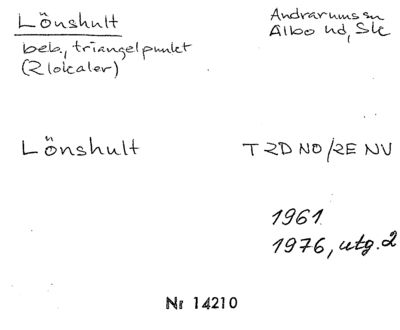 Lönshult
Andrarums sn
beb., triangelpunkt
Albo hd, Sk
(2 lokaler)
Lönshult
T 2D NO/2E NV
1961
1976, utg. 2
Nr 14210